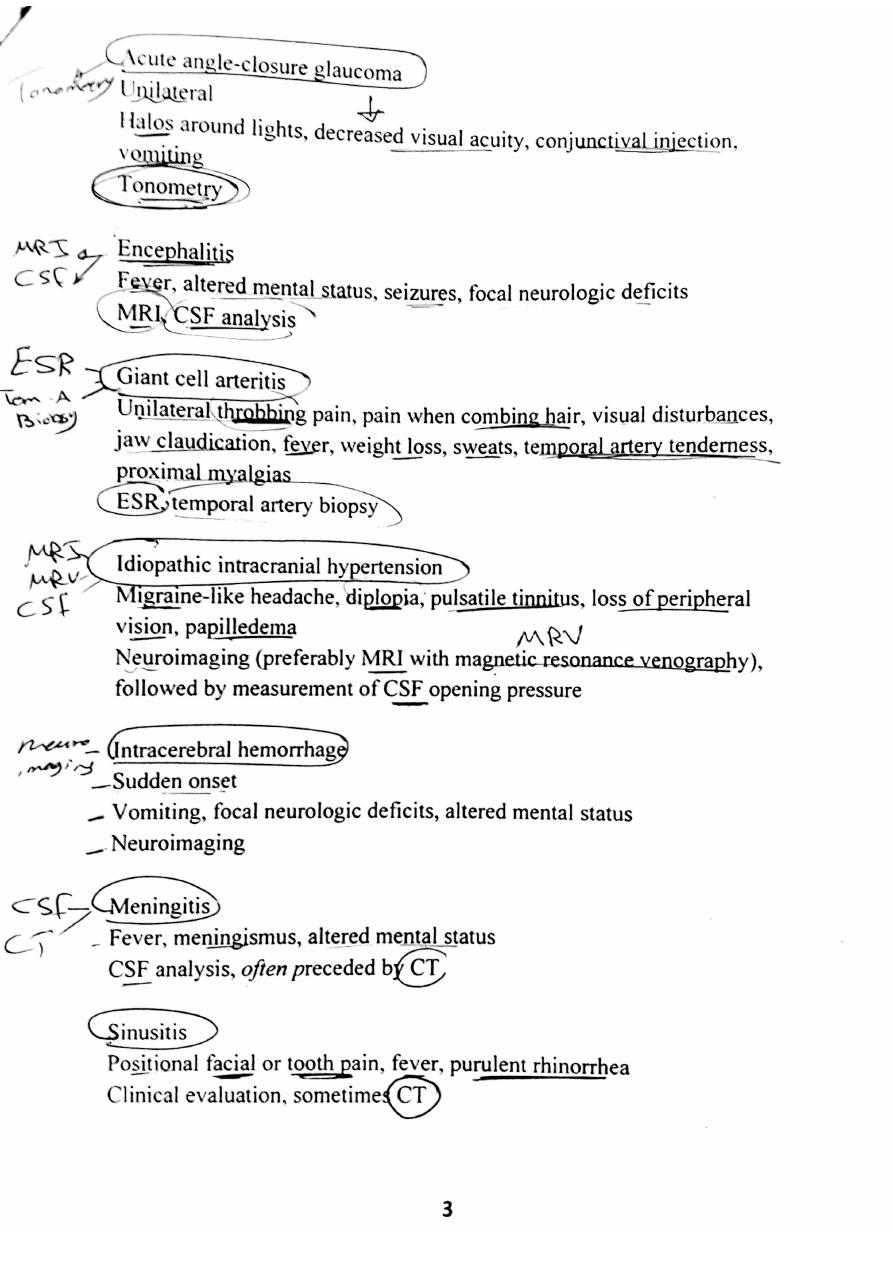 Acute angle-closure glaucoma
Tonometry
Unilateral
Halos around lights, decreased visual acuity, conjunctival injection,
vomiting
Tonometry
MRI
Encephalitis
CSF
Fever, altered mental status, seizures, focal neurologic deficits
MRI, CSF analysis
ESR
Giant cell arteritis
Tem. A
Biopsy
Unilateral throbbing pain, pain when combing hair, visual disturbances,
jaw claudication, fever, weight loss, sweats, temporal artery tenderness,
proximal myalgias
ESR, temporal artery biopsy
MRI
Idiopathic intracranial hypertension
MRV
CSF
Migraine-like headache, diplopia, pulsatile tinnitus, loss of peripheral
vision, papilledema
MRV
Neuroimaging (preferably MRI with magnetic resonance venography),
followed by measurement of CSF opening pressure
neuro
imaging
Intracerebral hemorrhage
– Sudden onset
– Vomiting, focal neurologic deficits, altered mental status
– Neuroimaging
CSF
Meningitis
CT
- Fever, meningismus, altered mental status
CSF analysis, often preceded by CT
Sinusitis
Positional facial or tooth pain, fever, purulent rhinorrhea
Clinical evaluation, sometimes CT
3